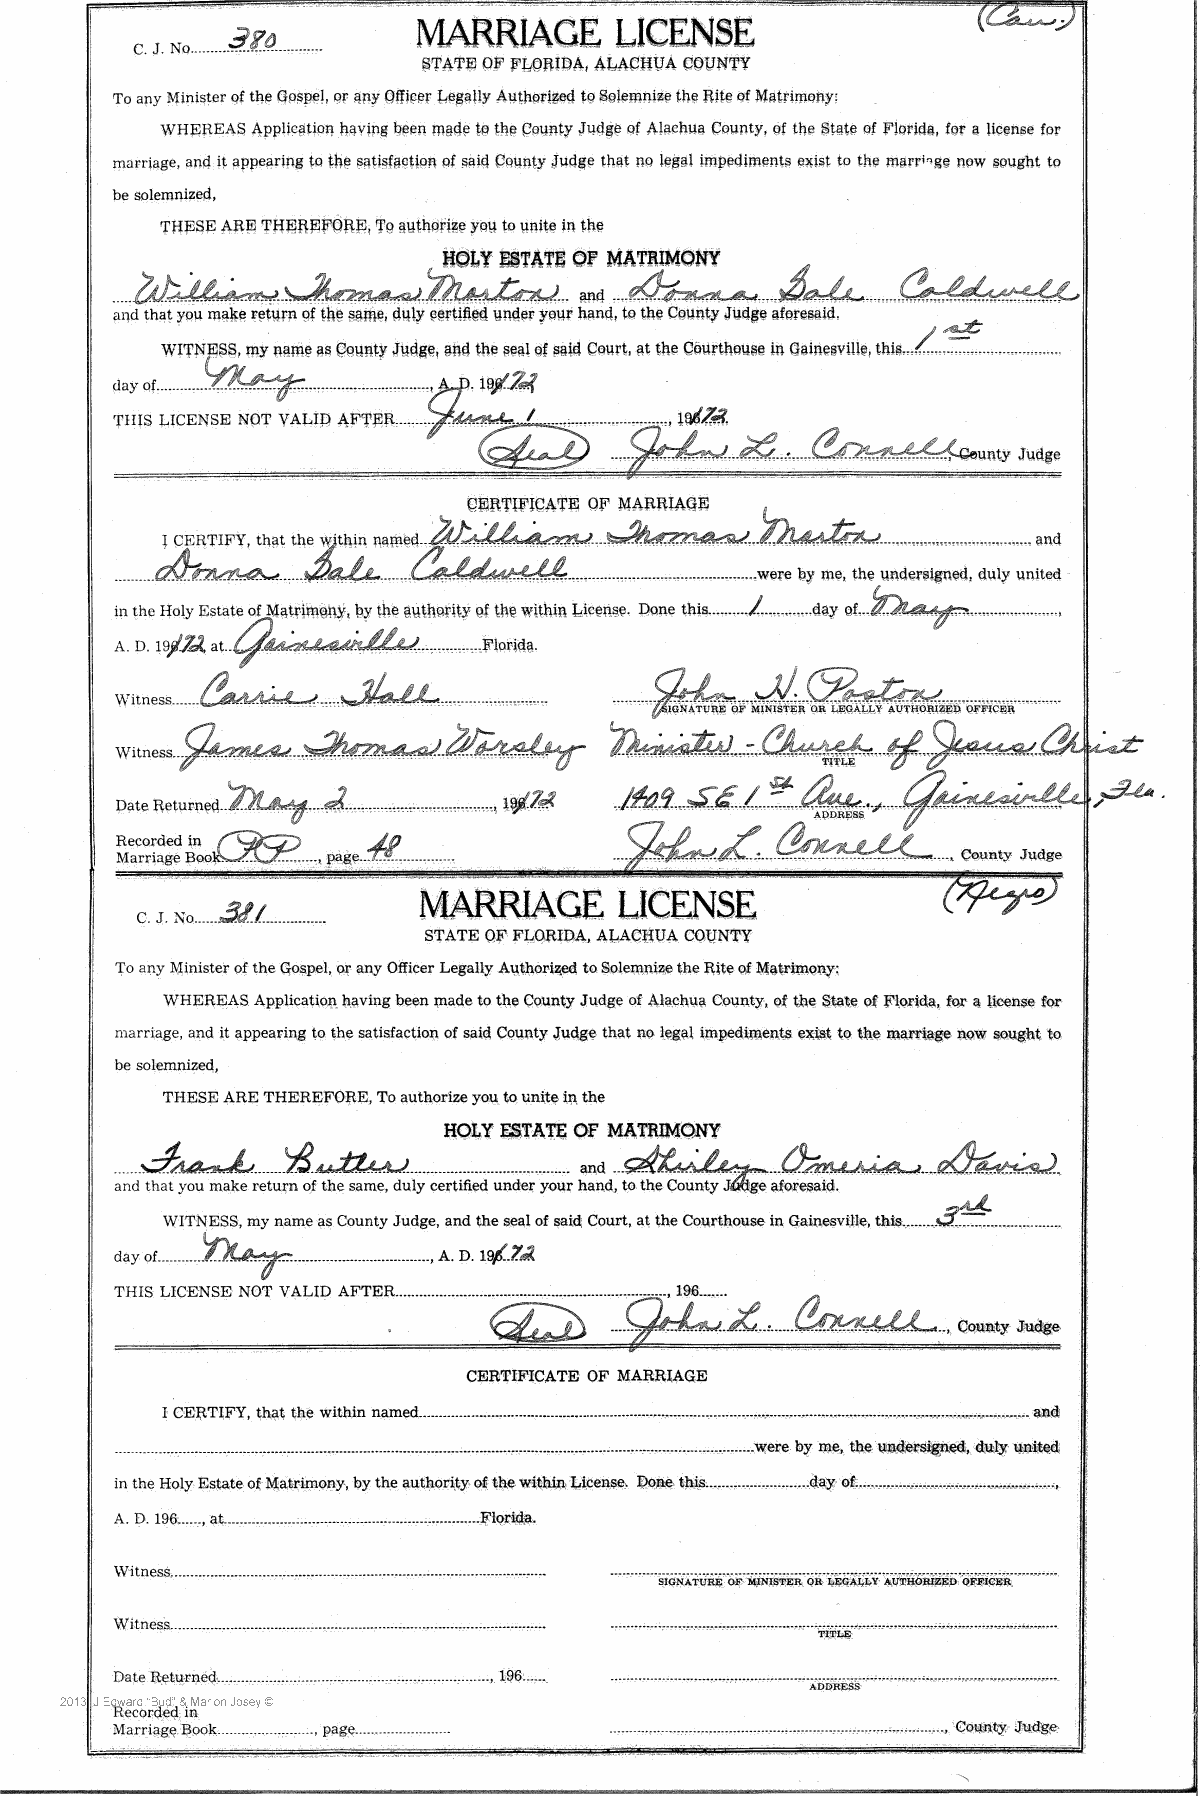 (Cau.)
C. J. No. 380
MARRIAGE LICENSE
STATE OF FLORIDA, ALACHUA COUNTY
To any Minister of the Gospel, or any Officer Legally Authorized to Solemnize the Rite of Matrimony:
WHEREAS Application having been made to the County Judge of Alachua County, of the State of Florida, for a license for
marriage, and it appearing to the satisfaction of said County Judge that no legal impediments exist to the marriage now sought to
be solemnized,
THESE ARE THEREFORE, To authorize you to unite in the
HOLY ESTATE OF MATRIMONY
William Thomas Marton and Donna Gale Caldwell
and that you make return of the same, duly certified under your hand, to the County Judge aforesaid.
WITNESS, my name as County Judge, and the seal of said Court, at the Courthouse in Gainesville, this 1st
day of May, A. D. 1972
THIS LICENSE NOT VALID AFTER June 1, 1972
(Seal) John L. Connell, County Judge
CERTIFICATE OF MARRIAGE
I CERTIFY, that the within named William Thomas Marton and
Donna Gale Caldwell were by me, the undersigned, duly united
in the Holy Estate of Matrimony, by the authority of the within License. Done this 1 day of May,
A. D. 1972, at Gainesville Florida.
Witness Carrie Hall John H. Poston
SIGNATURE OF MINISTER OR LEGALLY AUTHORIZED OFFICER
Witness James Thomas Worsley Minister - Church of Jesus Christ
TITLE
Date Returned May 2, 1972 1409 SE 1st Ave., Gainesville, Fla.
ADDRESS
Recorded in
Marriage Book PP, page 48 John L. Connell, County Judge
(Negro)
C. J. No. 381
MARRIAGE LICENSE
STATE OF FLORIDA, ALACHUA COUNTY
To any Minister of the Gospel, or any Officer Legally Authorized to Solemnize the Rite of Matrimony:
WHEREAS Application having been made to the County Judge of Alachua County, of the State of Florida, for a license for
marriage, and it appearing to the satisfaction of said County Judge that no legal impediments exist to the marriage now sought to
be solemnized,
THESE ARE THEREFORE, To authorize you to unite in the
HOLY ESTATE OF MATRIMONY
Frank Butler and Shirley Omeria Davis
and that you make return of the same, duly certified under your hand, to the County Judge aforesaid.
WITNESS, my name as County Judge, and the seal of said Court, at the Courthouse in Gainesville, this 3rd
day of May, A. D. 1972
THIS LICENSE NOT VALID AFTER, 196
(Seal) John L. Connell, County Judge
CERTIFICATE OF MARRIAGE
I CERTIFY, that the within named and
were by me, the undersigned, duly united
in the Holy Estate of Matrimony, by the authority of the within License. Done this day of,
A. D. 196, at Florida.
Witness
SIGNATURE OF MINISTER OR LEGALLY AUTHORIZED OFFICER
Witness
TITLE
Date Returned, 196
ADDRESS
2013 J Edward "Bud" & Marion Josey ©
Recorded in
Marriage Book, page, County Judge